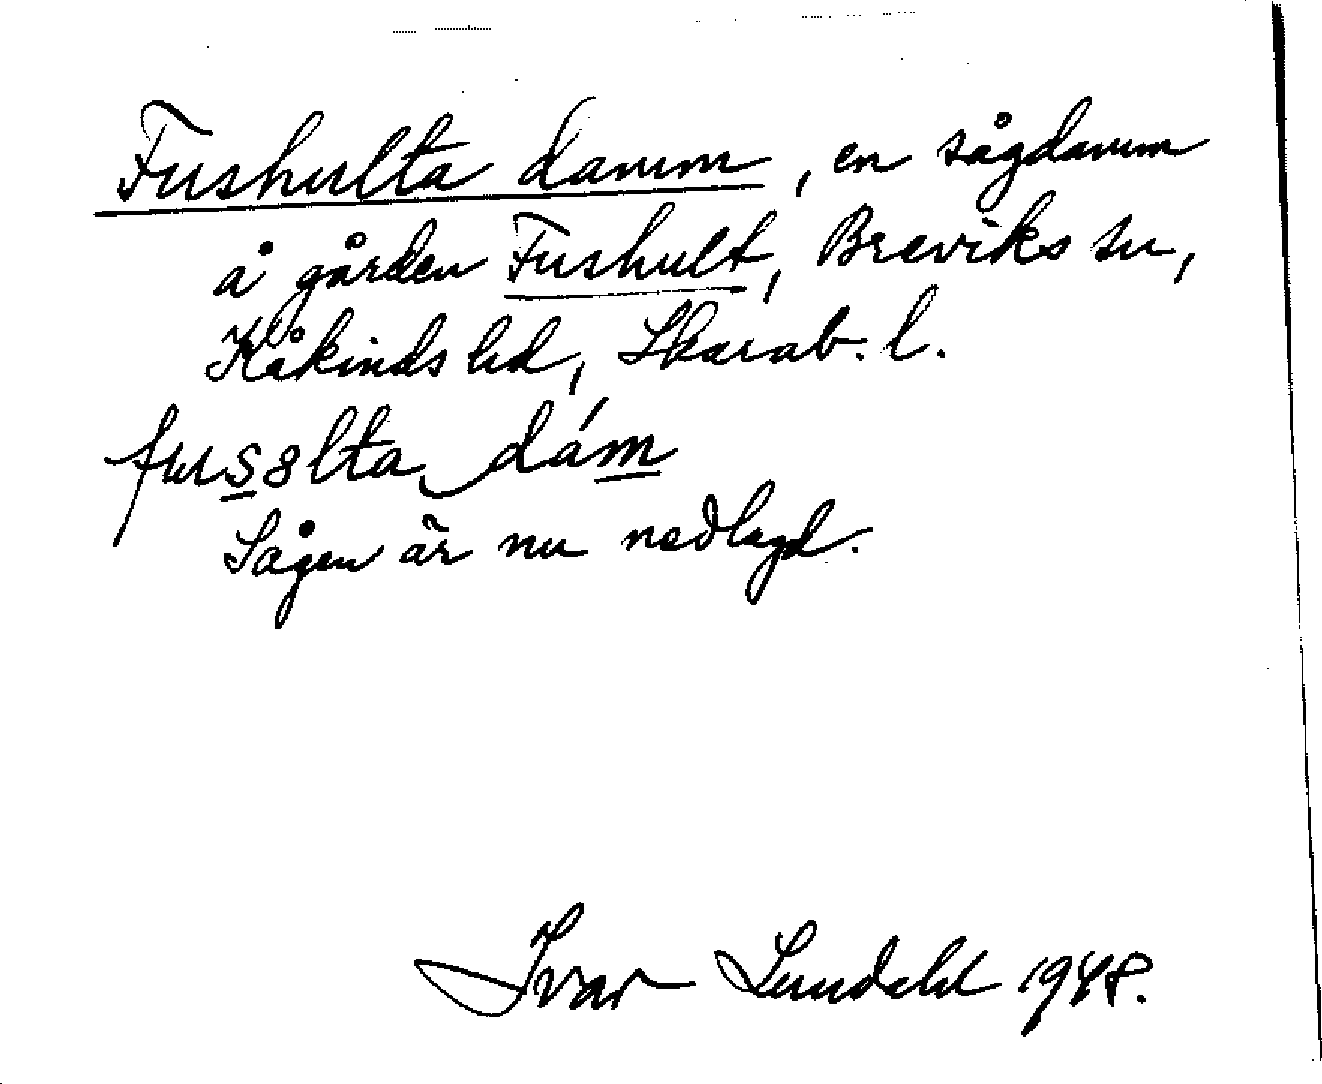 Fushulta damm, en sågdamm
å gården Fushult, Breviks sn,
Kåkinds hd, Skarab. l.
fus8lta dám
Sågen är nu nedlagd.
Ivar Lundahl 1948.